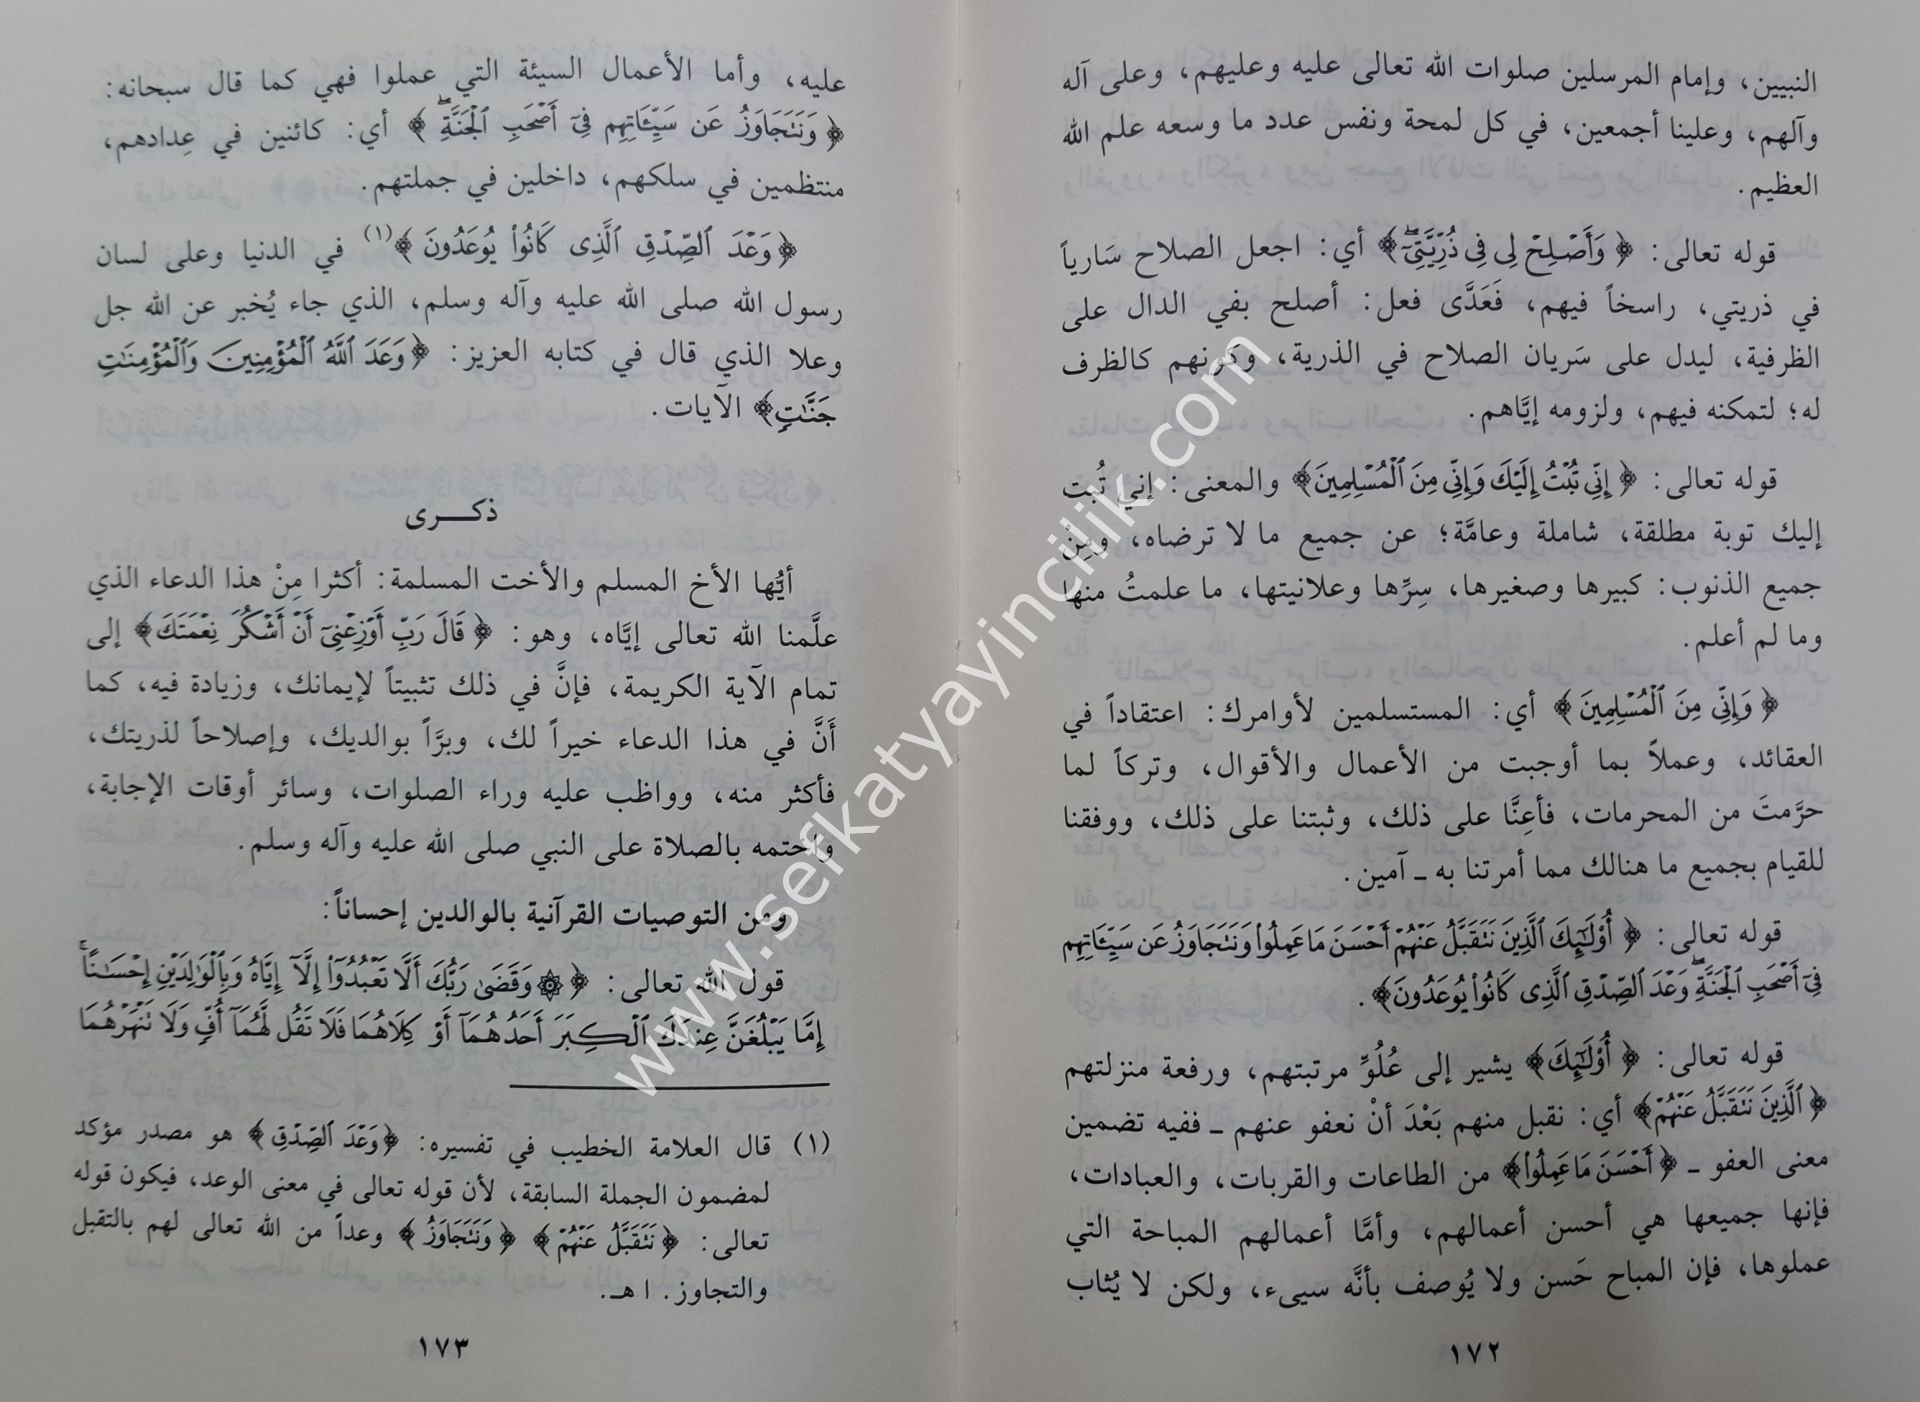 النبيين، وإمام المرسلين صلوات الله تعالى عليه وعليهم، وعلى آله
وآلهم، وعلينا أجمعين، في كل لمحة ونفس عدد ما وسعه علم الله
العظيم.
قوله تعالى: ﴿وَأَصْلِحْ لِى فِى ذُرِّيَّتِىٓ﴾ أي: اجعل الصلاح سَارياً
في ذريتي، راسخاً فيهم، فَعَدَّى فعل: أصلح بفي الدال على
الظرفية، ليدل على سَريان الصلاح في الذرية، وكونهم كالظرف
له؛ لتمكنه فيهم، ولزومه إيَّاهم.
قوله تعالى: ﴿إِنِّى تُبْتُ إِلَيْكَ وَإِنِّى مِنَ ٱلْمُسْلِمِينَ﴾ والمعنى: إني تُبت
إليك توبة مطلقة، شاملة وعامَّة؛ عن جميع ما لا ترضاه، ومِنْ
جميع الذنوب: كبيرها وصغيرها، سِرِّها وعلانيتها، ما علمتُ منها
وما لم أعلم.
﴿وَإِنِّى مِنَ ٱلْمُسْلِمِينَ﴾ أي: المستسلمين لأوامرك: اعتقاداً في
العقائد، وعملاً بما أوجبت من الأعمال والأقوال، وتركاً لما
حرَّمتَ من المحرمات، فأعِنَّا على ذلك، وثبتنا على ذلك، ووفقنا
للقيام بجميع ما هنالك مما أمرتنا به ـ آمين.
قوله تعالى: ﴿أُو۟لَٰٓئِكَ ٱلَّذِينَ نَتَقَبَّلُ عَنْهُمْ أَحْسَنَ مَا عَمِلُوا۟ وَنَتَجَاوَزُ عَن سَيِّـَٔاتِهِمْ
فِىٓ أَصْحَٰبِ ٱلْجَنَّةِ ۖ وَعْدَ ٱلصِّدْقِ ٱلَّذِى كَانُوا۟ يُوعَدُونَ﴾.
قوله تعالى: ﴿أُو۟لَٰٓئِكَ﴾ يشير إلى عُلُوِّ مرتبتهم، ورفعة منزلتهم
﴿ٱلَّذِينَ نَتَقَبَّلُ عَنْهُمْ﴾ أي: نقبل منهم بَعْدَ أنْ نعفو عنهم ـ ففيه تضمين
معنى العفو ـ ﴿أَحْسَنَ مَا عَمِلُوا۟﴾ من الطاعات والقربات، والعبادات،
فإنها جميعها هي أحسن أعمالهم، وأمَّا أعمالهم المباحة التي
عملوها، فإن المباح حَسن ولا يُوصف بأنَّه سيىء، ولكن لا يُثاب
١٧٢
عليه، وأما الأعمال السيئة التي عملوا فهي كما قال سبحانه:
﴿وَنَتَجَاوَزُ عَن سَيِّـَٔاتِهِمْ فِىٓ أَصْحَٰبِ ٱلْجَنَّةِ ۖ﴾ أي: كائنين في عِدادهم،
منتظمين في سلكهم، داخلين في جملتهم.
﴿وَعْدَ ٱلصِّدْقِ ٱلَّذِى كَانُوا۟ يُوعَدُونَ﴾(١) في الدنيا وعلى لسان
رسول الله صلى الله عليه وآله وسلم، الذي جاء يُخبر عن الله جل
وعلا الذي قال في كتابه العزيز: ﴿وَعَدَ ٱللَّهُ ٱلْمُؤْمِنِينَ وَٱلْمُؤْمِنَٰتِ
جَنَّٰتٍ﴾ الآيات.
ذكـــرى
أيُّها الأخ المسلم والأخت المسلمة: أكثرا مِنْ هذا الدعاء الذي
علَّمنا الله تعالى إيَّاه، وهو: ﴿قَالَ رَبِّ أَوْزِعْنِىٓ أَنْ أَشْكُرَ نِعْمَتَكَ﴾ إلى
تمام الآية الكريمة، فإنَّ في ذلك تثبيتاً لإيمانك، وزيادة فيه، كما
أنَّ في هذا الدعاء خيراً لك، وبرَّاً بوالديك، وإصلاحاً لذريتك،
فأكثر منه، وواظب عليه وراء الصلوات، وسائر أوقات الإجابة،
واختمه بالصلاة على النبي صلى الله عليه وآله وسلم.
ومن التوصيات القرآنية بالوالدين إحساناً:
قول الله تعالى: ﴿۞ وَقَضَىٰ رَبُّكَ أَلَّا تَعْبُدُوٓا۟ إِلَّآ إِيَّاهُ وَبِٱلْوَٰلِدَيْنِ إِحْسَٰنًا ۚ
إِمَّا يَبْلُغَنَّ عِندَكَ ٱلْكِبَرَ أَحَدُهُمَآ أَوْ كِلَاهُمَا فَلَا تَقُل لَّهُمَآ أُفٍّ وَلَا تَنْهَرْهُمَا
(١) قال العلامة الخطيب في تفسيره: ﴿وَعْدَ ٱلصِّدْقِ﴾ هو مصدر مؤكد
لمضمون الجملة السابقة، لأن قوله تعالى في معنى الوعد، فيكون قوله
تعالى: ﴿نَتَقَبَّلُ عَنْهُمْ﴾ ﴿وَنَتَجَاوَزُ﴾ وعداً من الله تعالى لهم بالتقبل
والتجاوز. ا هـ.
١٧٣
www.sefkatyayincilik.com